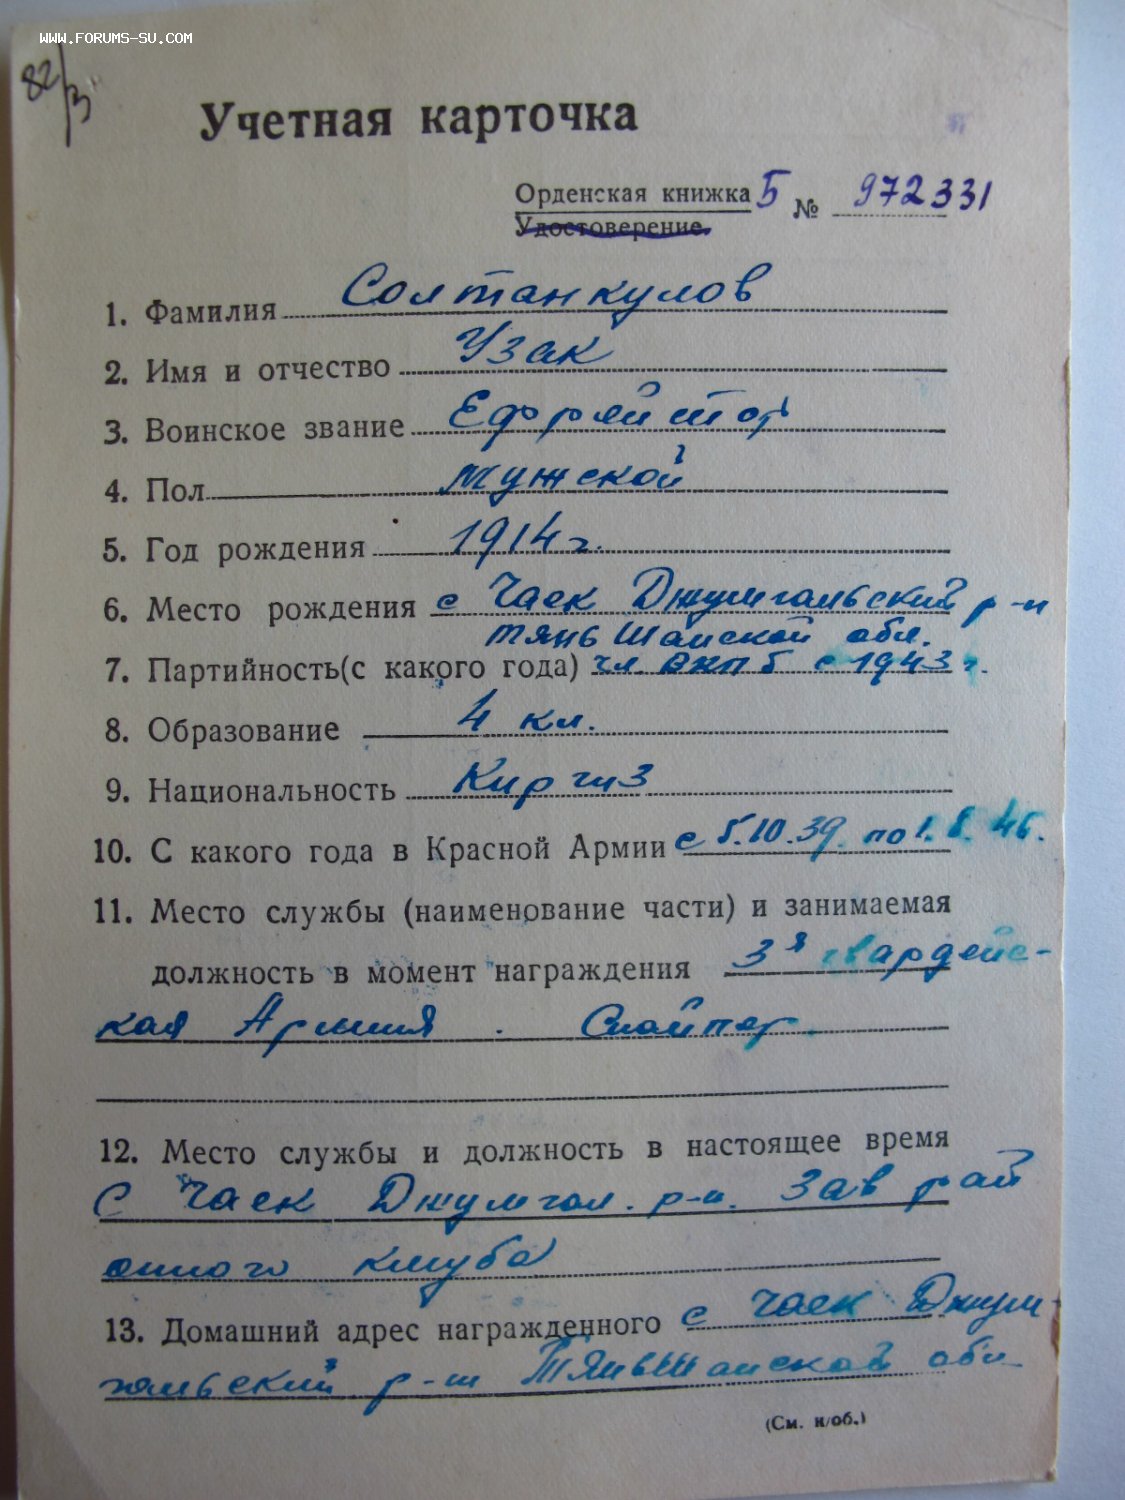 WWW.FORUMS-SU.COM
82/3
Учетная карточка
Орденская книжка Б № 972331
Удостоверение
1. Фамилия Солтанкулов
2. Имя и отчество Узак
3. Воинское звание Ефрейтор
4. Пол мужской
5. Год рождения 1914 г.
6. Место рождения с Чаек Джумгальский р-н
тянь Шанской обл.
7. Партийность (с какого года) чл ВКПб с 1943 г.
8. Образование 4 кл.
9. Национальность Киргиз
10. С какого года в Красной Армии с 5.10.39. по 1. 8. 46.
11. Место службы (наименование части) и занимаемая
должность в момент награждения 3я гвардейс-
кая Армия. Снайпер.
12. Место службы и должность в настоящее время
С Чаек Джумгал. р-н. Зав рай
онного клуба
13. Домашний адрес награжденного с Чаек Джум-
гальский р-н ТяньШанской обл
(См. н/об.)